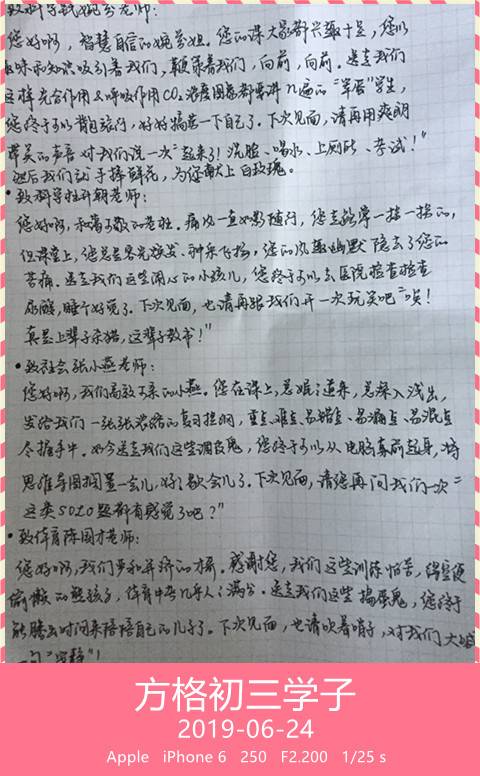 您好啊，智慧自信的婉芬姐。您的课大家都兴趣十足，您以
趣味和知识吸引着我们，鞭策着我们，向前，向前。送走我们
这样光合作用&呼吸作用CO₂浓度图象都要讲n遍的"笨蛋"学生，
您终于可以背包旅行，好好犒劳一下自己了。下次见面，请再用爽朗
带笑的声音对我们说一次"起来了！洗脸、喝水、上厕所、考试！"
然后我们会手捧鲜花，为您献上白玫瑰。
老师：
您好啊，和蔼可敬的老班。痛风一直如影随行，您走路常一拐一拐的，
但课堂上，您总是容光焕发、神采飞扬，您的风趣幽默隐去了您的
苦痛。送走我们这些闹心的小孩儿，您终于可以去医院检查检查
尿酸，睡个好觉了。下次见面，也请再跟我们开一次玩笑吧"唉！
真是上辈子杀猪，这辈子教书！"
•致社会张小燕老师：
您好啊，我们高效可亲的小燕。您在课上，总娓娓道来，总深入浅出，
发给我们一张张浓缩的复习提纲，重点、难点、易错点、易漏点、易混点
尽握手中。如今送走我们这些调皮鬼，您终于可以从电脑幕前起身，将
思维导图搁置一会儿，好好歇会儿了。下次见面，请您再问我们一次"
这类SOLO题都有感觉了吧？"
•致体育陈国才老师：
您好啊，我们男和并济的才哥。感谢您，我们这些训练怕苦，得空便
偷懒的熊孩子，体育中考几乎人人满分。送走我们这些捣蛋鬼，您终于
能腾出时间来陪陪自己的儿子了。下次见面，也请吹着哨子，对我们大喊
一句"安静"！
方格初三学子
2019-06-24
Apple iPhone 6 250 F2.200 1/25 s